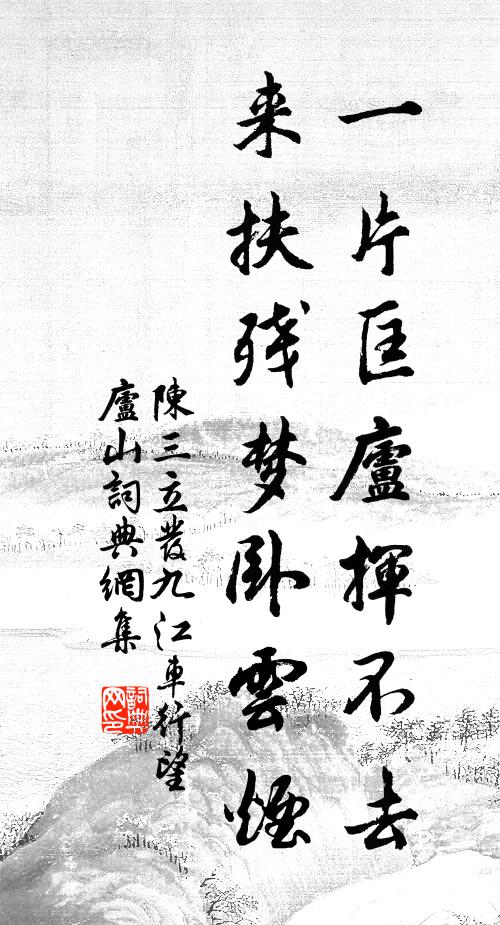 一片匡廬揮不去
来扶残梦卧雲煙
陳三立發九江車行望
廬山詞典網集
詞典网印